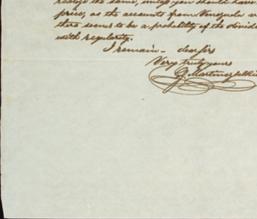 realize the same, unless you should have
price, as the accounts from Venezuela
there seems to be a probability of the divide
with regularity.
I remain dear sir
Very truly yours
J. Martinez